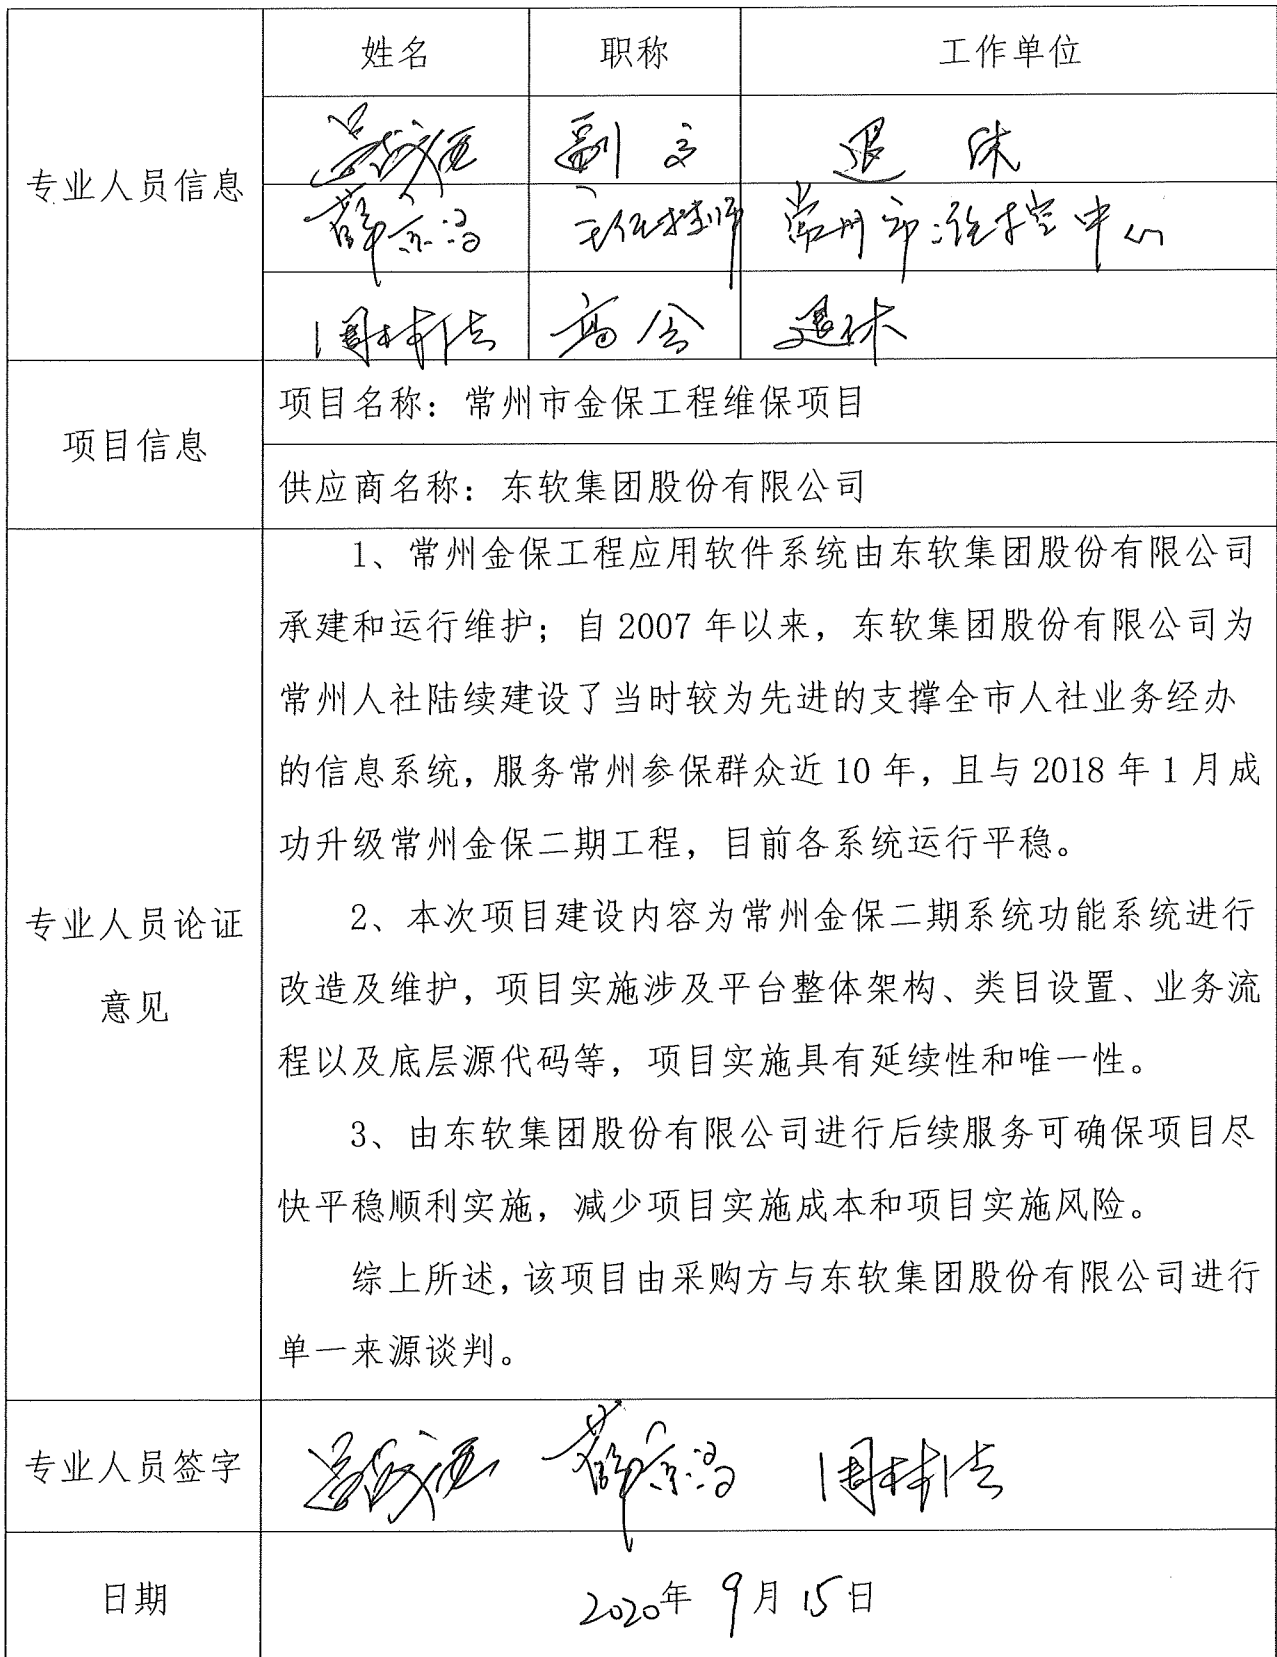 姓名 职称 工作单位
专业人员信息
副高 退休
薛宗 主任技师 常州市疾控中心
周林 高会 退休
项目信息
项目名称：常州市金保工程维保项目
供应商名称：东软集团股份有限公司
专业人员论证
意见
1、常州金保工程应用软件系统由东软集团股份有限公司
承建和运行维护；自 2007 年以来，东软集团股份有限公司为
常州人社陆续建设了当时较为先进的支撑全市人社业务经办
的信息系统，服务常州参保群众近 10 年，且与 2018 年 1 月成
功升级常州金保二期工程，目前各系统运行平稳。
2、本次项目建设内容为常州金保二期系统功能系统进行
改造及维护，项目实施涉及平台整体架构、类目设置、业务流
程以及底层源代码等，项目实施具有延续性和唯一性。
3、由东软集团股份有限公司进行后续服务可确保项目尽
快平稳顺利实施，减少项目实施成本和项目实施风险。
综上所述，该项目由采购方与东软集团股份有限公司进行
单一来源谈判。
专业人员签字
日期
2020年 9月 15日